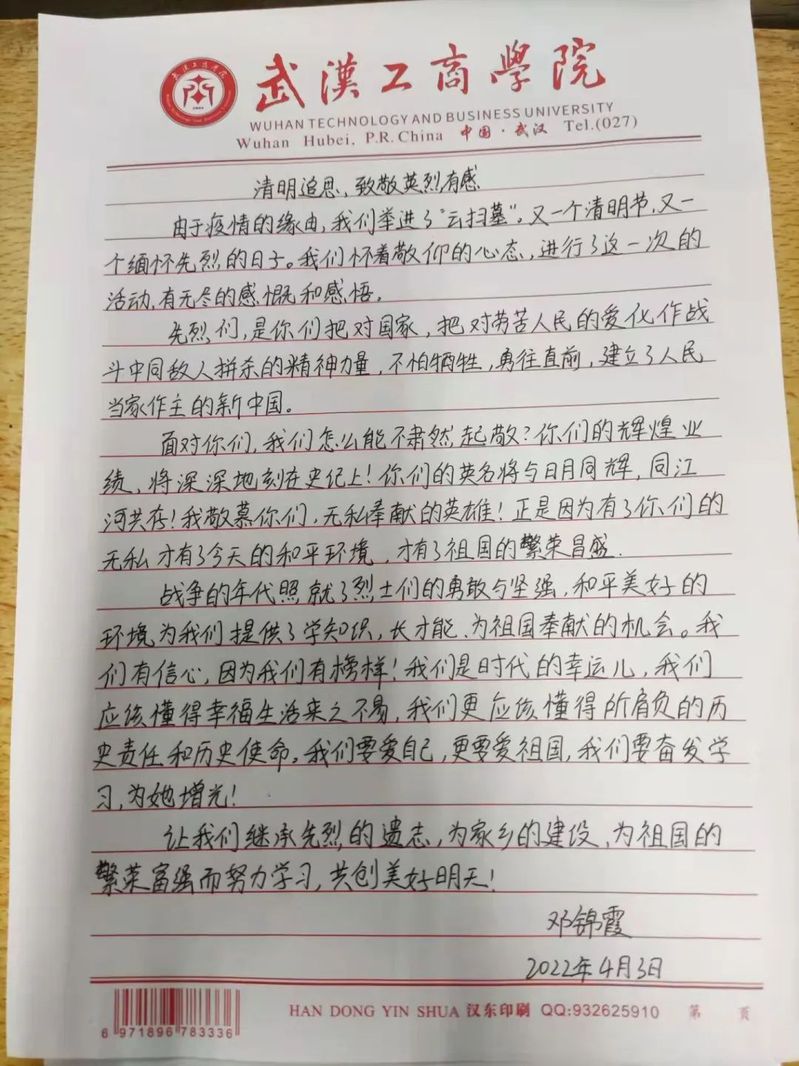 武漢工商學院
WUHAN TECHNOLOGY AND BUSINESS UNIVERSITY
Wuhan Hubei, P.R.China 中国·武汉 Tel.(027)
清明追思,致敬英烈有感
由于疫情的缘由,我们举进了"云扫墓"。又一个清明节,又一
个缅怀先烈的日子。我们怀着敬仰的心态,进行了这一次的
活动,有无尽的感慨和感悟。
先烈们,是你们把对国家,把对劳苦人民的爱化作战
斗中同敌人拼杀的精神力量,不怕牺牲,勇往直前,建立了人民
当家作主的新中国。
面对你们,我们怎么能不肃然起敬?你们的辉煌业
绩,将深深地刻在史记上!你们的英名将与日月同辉,同江
河共存!我敬慕你们,无私奉献的英雄!正是因为有了你们的
无私才有了今天的和平环境,才有了祖国的繁荣昌盛.
战争的年代照就了烈士们的勇敢与坚强,和平美好的
环境为我们提供了学知识,长才能,为祖国奉献的机会。我
们有信心,因为我们有榜样!我们是时代的幸运儿,我们
应该懂得幸福生活来之不易,我们更应该懂得所肩负的历
史责任和历史使命。我们要爱自己,更要爱祖国,我们要奋发学
习,为她增光!
让我们继承先烈的遗志,为家乡的建设、为祖国的
繁荣富强而努力学习,共创美好明天!
邓锦霞
2022年4月3日
6 971896 783336
HAN DONG YIN SHUA 汉东印刷 QQ:932625910 第 页